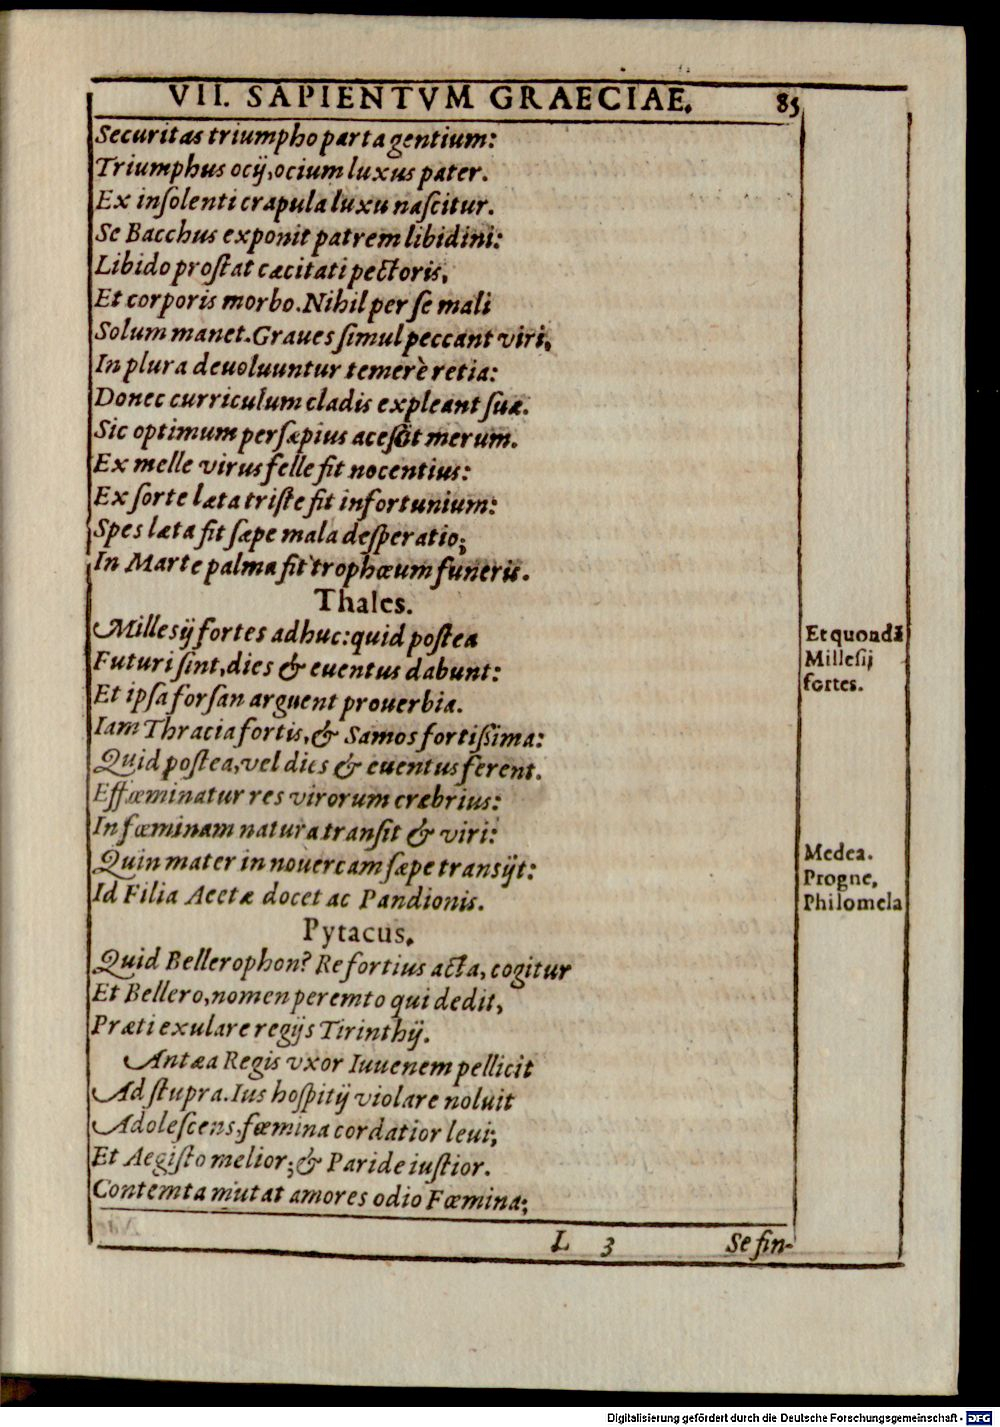 VII. SAPIENTVM GRAECIAE. 85
Securitas triumpho parta gentium:
Triumphus ocij, ocium luxus pater.
Ex inſolenti crapula luxu naſcitur.
Se Bacchus exponit patrem libidini:
Libido proſtat cæcitati pectoris,
Et corporis morbo. Nihil per ſe mali
Solum manet. Graues ſimul peccant viri,
In plura deuoluuntur temerè retia:
Donec curriculum cladis expleant ſuæ.
Sic optimum perſæpius aceſcit merum.
Ex melle virus felle fit nocentius:
Ex ſorte læta triſte fit infortunium:
Spes læta fit ſæpe mala deſperatio;
In Marte palma fit trophœum funeris.
Thales.
Milleſij fortes adhuc: quid poſtea
Futuri ſint, dies & euentus dabunt:
Et ipſa forſan arguent prouerbia.
Iam Thracia fortis, & Samos fortiſſima:
Quid poſtea, vel dies & euentus ferent.
Effœminatur res virorum crebrius:
In fœminam natura tranſit & viri:
Quin mater in nouercam ſæpe transijt:
Id Filia Aeetæ docet ac Pandionis.
Et quondā
Milleſij
fortes.
Medea.
Progne,
Philomela
Pytacus.
Quid Bellerophon? Re fortius acta, cogitur
Et Bellero, nomen peremto qui dedit,
Præti exulare regijs Tirinthij.
Antæa Regis vxor Iuuenem pellicit
Ad ſtupra. Ius hoſpitij violare noluit
Adoleſcens, fœmina cordatior leui;
Et Aegiſto melior; & Paride iuſtior.
Contemta mutat amores odio Fœmina;
L 3 Se fin-
Digitalisierung gefördert durch die Deutsche Forschungsgemeinschaft - DFG